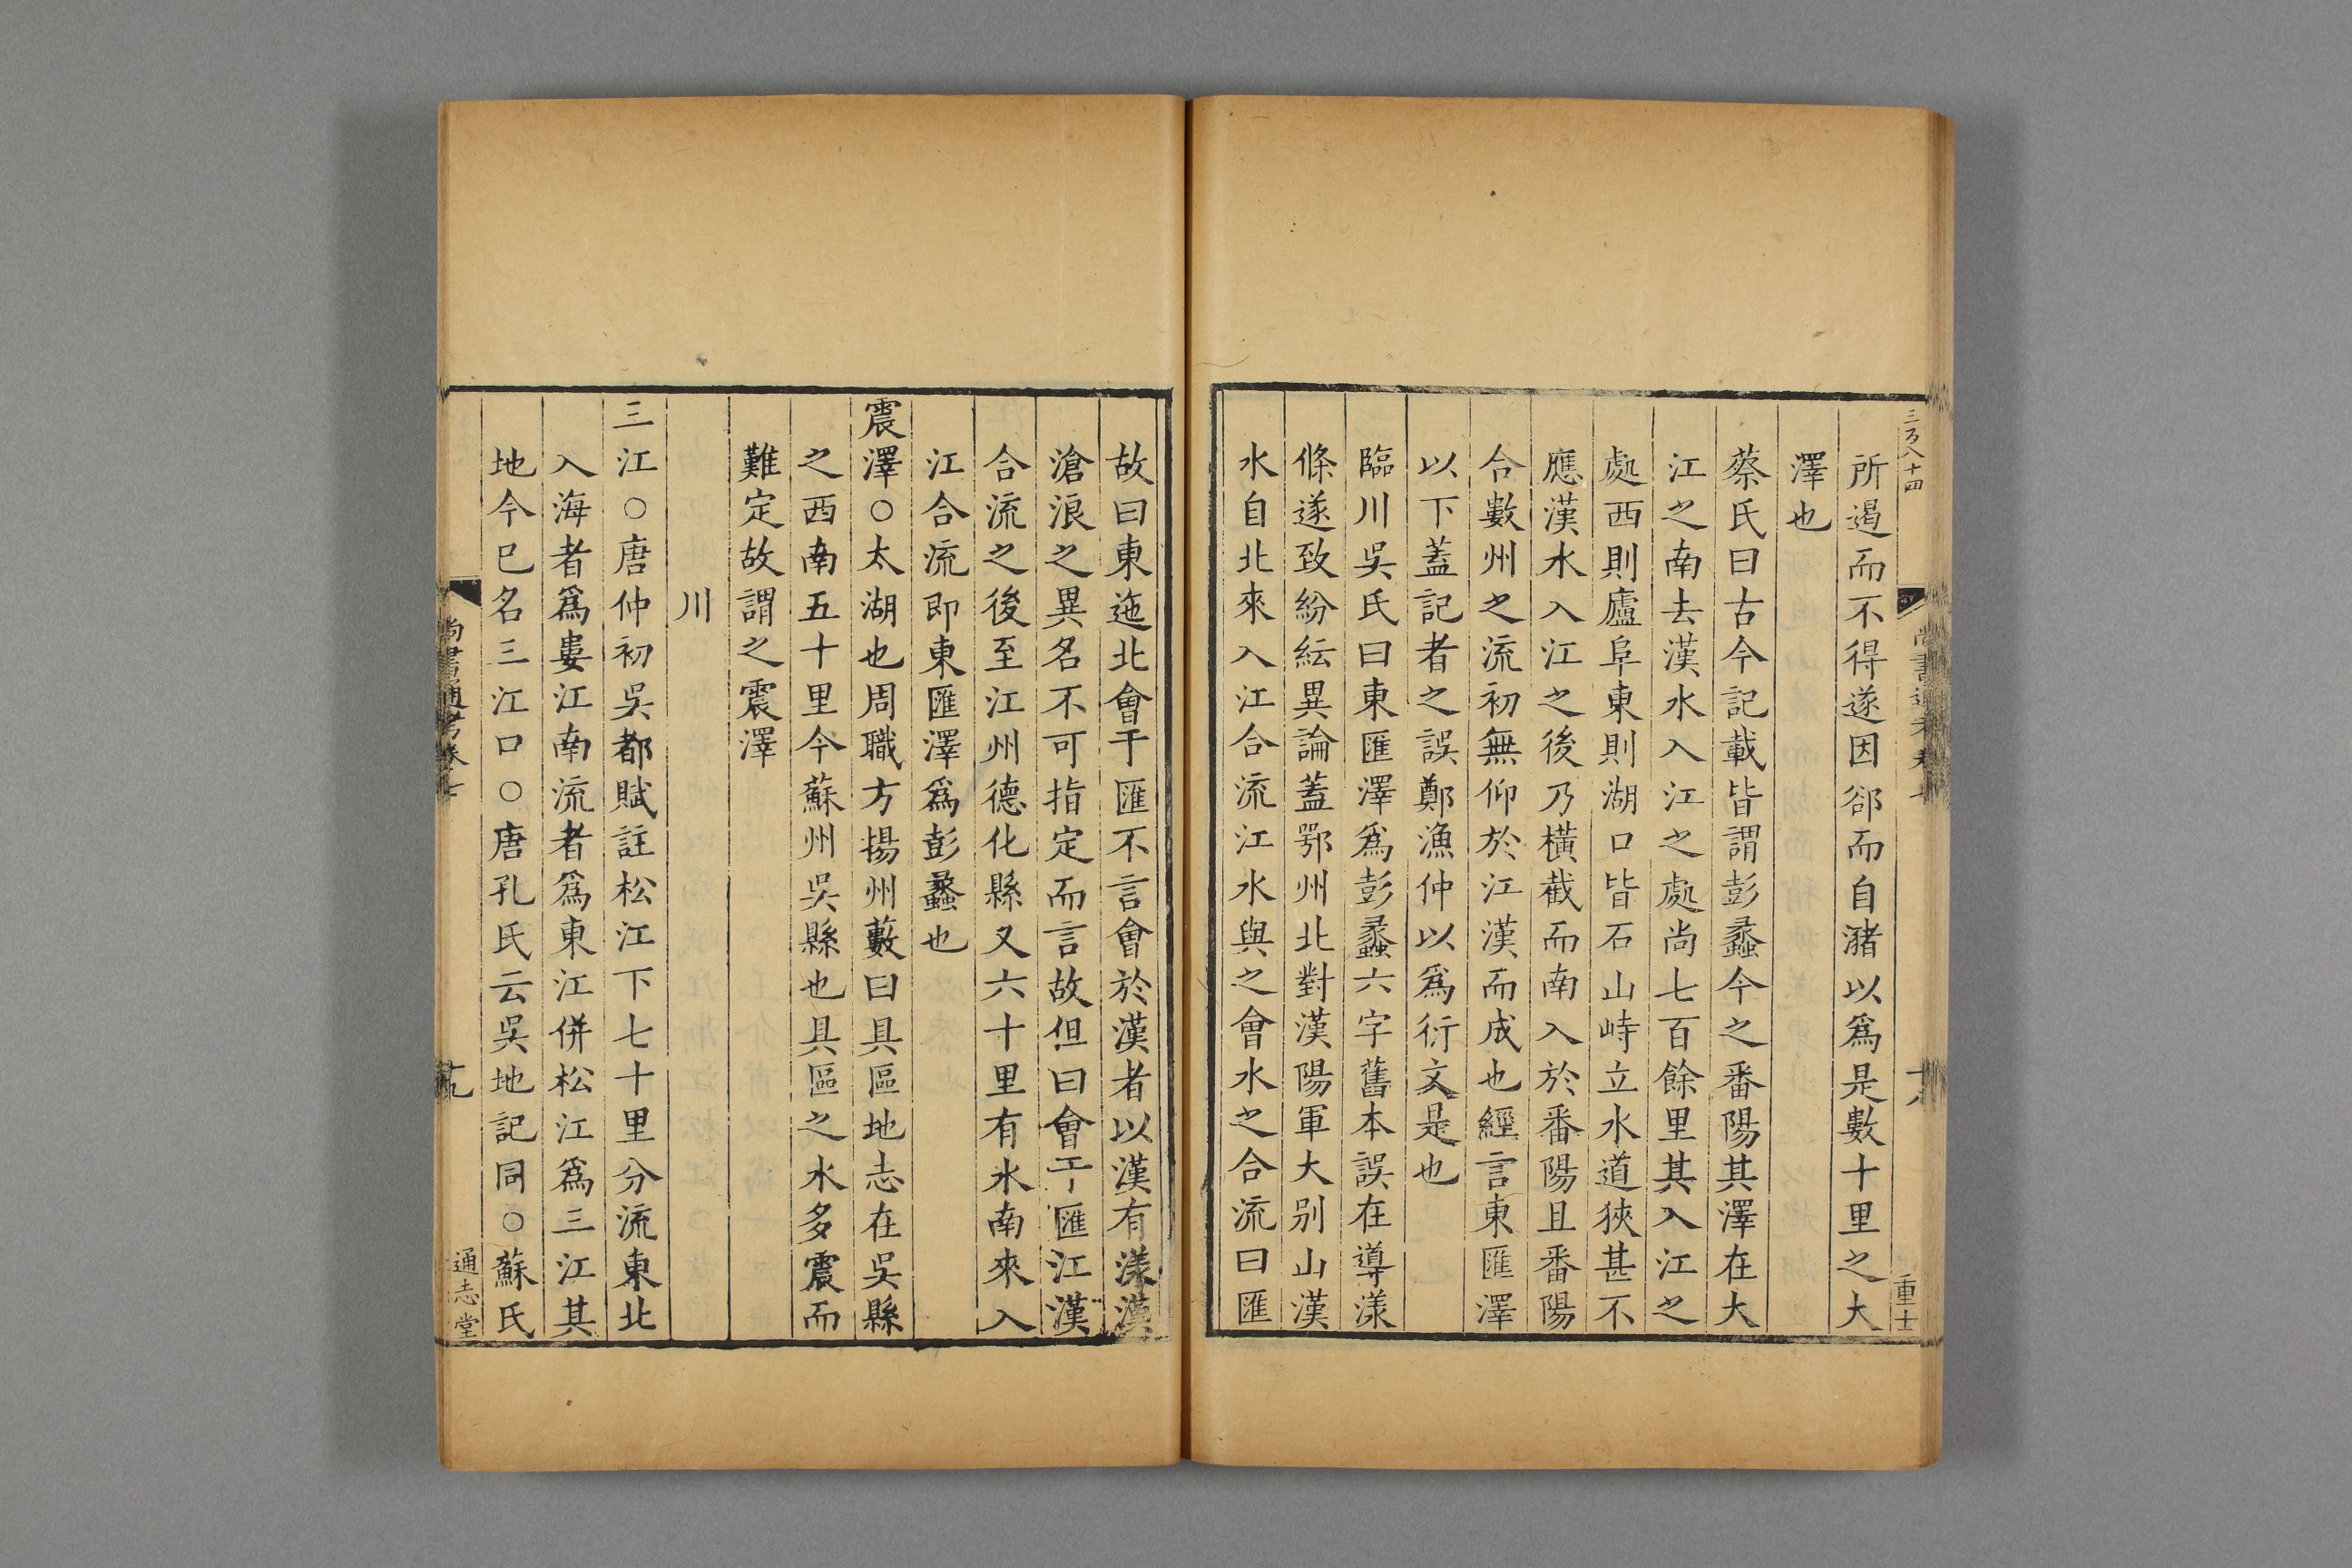 三万八十四
所遏而不得遂因卻而自瀦以爲是數十里之大
澤也
蔡氏曰古今記載皆謂彭蠡今之番陽其澤在大
江之南去漢水入江之處尚七百餘里其入江之
處西則廬阜東則湖口皆石山峙立水道狹甚不
應漢水入江之後乃橫截而南入於番陽且番陽
合數州之流初無仰於江漢而成也經言東匯澤
以下蓋記者之誤鄭漁仲以爲衍文是也
臨川吳氏曰東匯澤爲彭蠡六字舊本誤在導漾
條遂致紛紜異論蓋鄂州北對漢陽軍大别山漢
水自北來入江合流江水與之會水之合流曰匯
故曰東迤北會于匯不言會於漢者以漢有漾漢
滄浪之異名不可指定而言故但曰會于匯江漢
合流之後至江州德化縣又六十里有水南來入
江合流即東匯澤爲彭蠡也
震澤○太湖也周職方揚州藪曰具區地志在吳縣
之西南五十里今蘇州吳縣也具區之水多震而
難定故謂之震澤
川
三江○唐仲初吳都賦註松江下七十里分流東北
入海者爲婁江南流者爲東江併松江爲三江其
地今巳名三江口○唐孔氏云吳地記同○蘇氏
尚書通考卷七
十九
通志堂